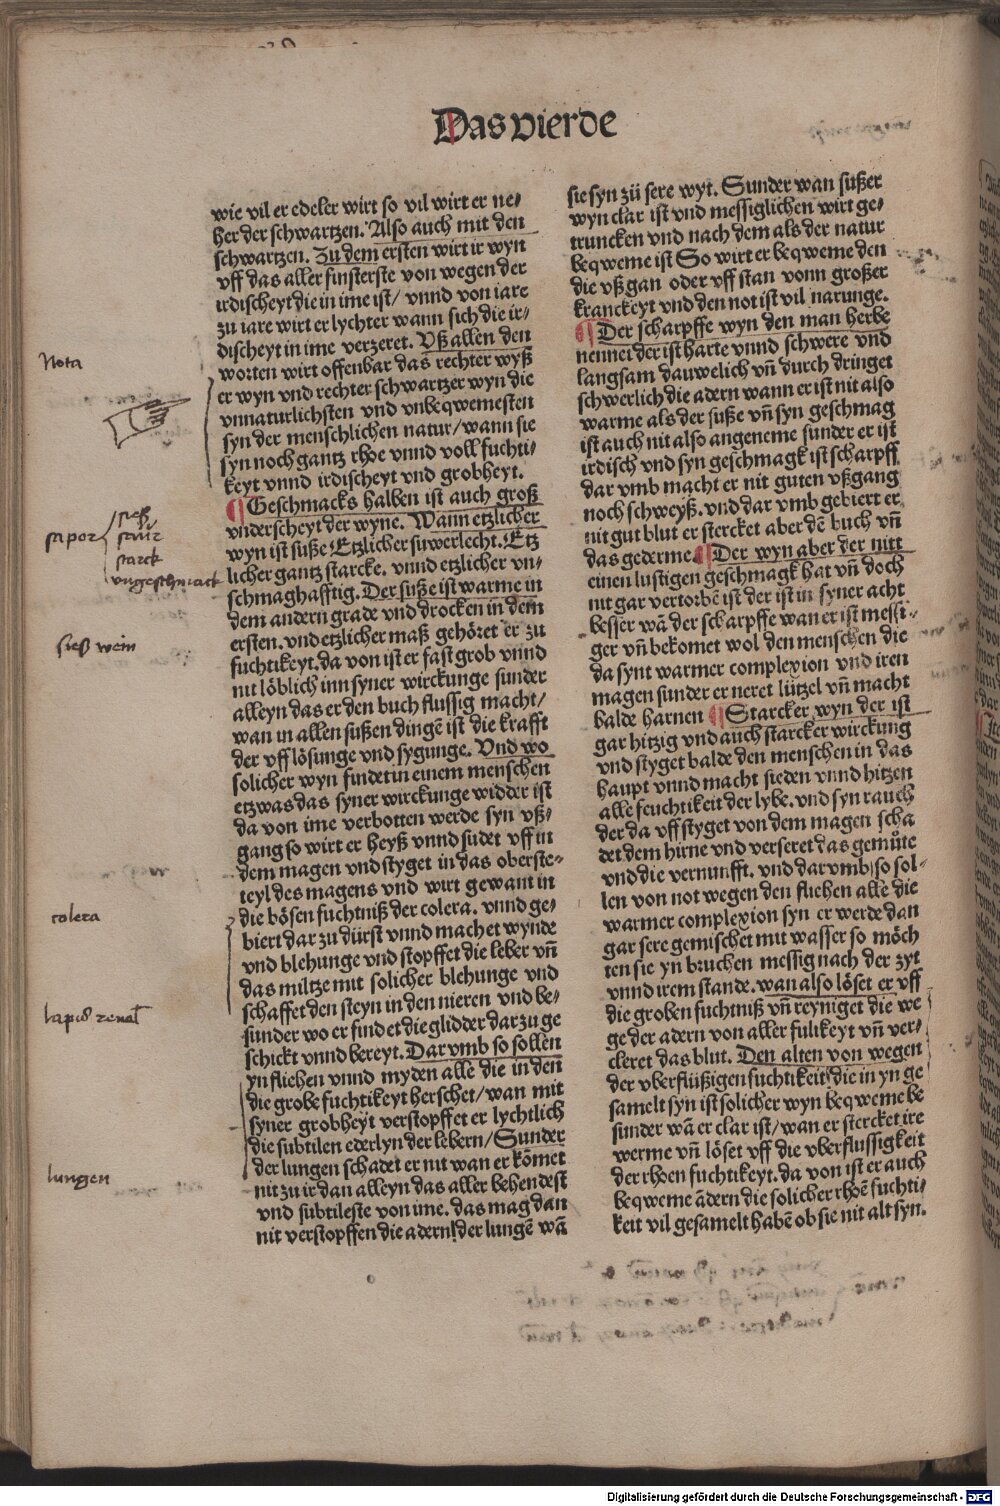 Das vierde
wie vil er edeler wirt so vil wirt er ne⸗
her der schwartzen. Also auch mit den
schwartzen. Zu dem ersten wirt ir wyn
vff das aller finsterste von wegen der
irdischeyt die in ime ist/ vnnd von iare
zu iare wirt er lychter wann sich die ir⸗
discheyt in ime verzeret. Vß allen den
worten wirt offenbar das rechter wyß
er wyn vnd rechter schwartzer wyn die
vnnaturlichsten vnd vnbeqwemesten
syn der menschlichen natur/ wann sie
syn noch gantz rhoe vnnd voll fuchti⸗
keyt vnnd irdischeyt vnd grobheyt.
¶ Geschmacks halben ist auch groß
vnderscheyt der wyne. Wann etzlicher
wyn ist suße Etzlicher suwerlecht. Etz
licher gantz starcke. vnnd etzlicher vn⸗
schmaghafftig. Der suße ist warme in
dem andern grade vnd drocken in dem
ersten. vnd etzlicher maß gehöret er zu
fuchtikeyt. da von ist er fast grob vnnd
nit löblich inn syner wirckunge sunder
alleyn das er den buch flussig macht/
wan in allen sußen dingē ist die krafft
der vff lösunge vnd sygunge. Vnd wo
solicher wyn findet in einem menschen
etzwas das syner wirckunge widder ist
da von ime verbotten werde syn vß⸗
gang so wirt er heyß vnnd sudet vff in
dem magen vnd styget in das oberste⸗
teyl des magens vnd wirt gewant in
die bösen fuchtniß der colera. vnnd ge⸗
biert dar zu dürst vnnd machet wynde
vnd blehunge vnd stopffet die leber vn̄
das miltze mit solicher blehunge vnd
schaffet den steyn in den nieren vnd be⸗
sunder wo er findet die glidder dar zu ge
schickt vnnd bereyt. Dar vmb so sollen
yn fliehen vnnd myden alle die in den
die grobe fuchtikeyt herschet/ wan mit
syner grobheyt verstopffet er lychtlich
die subtilen ederlyn der lebern/ Sunder
der lungen schadet er nit wan er kōmet
nit zu ir dan alleyn das aller behendest
vnd subtileste von ime. das mag dan
nit verstopffen die adern der lungē wā
sie syn zü sere wyt. Sunder wan sußer
wyn clar ist vnd messiglichen wirt ge⸗
truncken vnd nach dem als der natur
beqweme ist So wirt er beqweme den
die vßgan oder vff stan vonn großer
kranckeyt vnd den not ist vil narunge.
¶ Der scharpffe wyn den man herbe
nennet der ist harte vnnd schwere vnd
langsam dauwelich vn̄ durch dringet
schwerlich die adern wann er ist nit also
warme als der suße vn̄ syn geschmag
ist auch nit also angeneme sunder er ist
irdisch vnd syn geschmagk ist scharpff
dar vmb macht er nit guten vßgang
noch schweyß. vnd dar vmb gebiert er
nit gut blut er stercket aber dē buch vn̄
das gederme. ¶ Der wyn aber der nitt
einen lustigen geschmagk hat vn̄ doch
nit gar vertorbē ist der ist in syner acht
besser wā der scharpffe wan er ist messi⸗
ger vn̄ bekomet wol den menschen die
da synt warmer complexion vnd iren
magen sunder er neret lützel vn̄ macht
balde harnen ¶ Starcker wyn der ist
gar hitzig vnd auch starcker wirckung
vnd styget balde den menschen in das
haupt vnnd macht sieden vnnd hitzen
alle feuchtikeit der lybe. vnd syn rauch
der da vff styget von dem magen scha
det dem hirne vnd verseret das gemüte
vnd die vernunfft. vnd dar vmb so sol⸗
len von not wegen den fliehen alle die
warmer complexion syn er werde dan
gar sere gemischet mit wasser so möch
ten sie yn bruchen messig nach der zyt
vnnd irem stande. wan also löset er vff
die groben fuchtniß vn̄ reyniget die we
ge der adern von aller fulikeyt vn̄ ver⸗
cleret das blut. Den alten von wegen
der vberflüßigen fuchtikeit die in yn ge
samelt syn ist solicher wyn beqweme be
sunder wā er clar ist/ wan er stercket ire
werme vn̄ löset vff die vberflussigkeit
der rhoen fuchtikeyt. da von ist er auch
beqweme ādern die solicher rhoē fuchti⸗
keit vil gesamelt habē ob sie nit alt syn.
Nota
sapor
sieß
saur
starck
vngeschmackt
sieß wein
colera
lapis renal
lungen
Digitalisierung gefördert durch die Deutsche Forschungsgemeinschaft - DFG